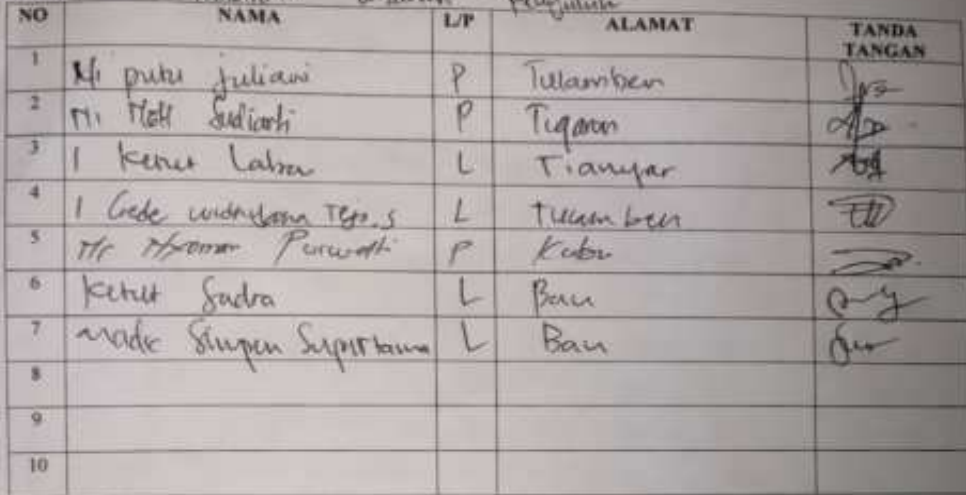 NO NAMA L/P ALAMAT TANDA TANGAN
1 Ni putu juliani P Tulamben
2 Ni Sudiarti P Tigaron
3 I Ketut Laba L Tianyar
4 I Gede L Tulamben
5 Ni Nyoman Purwati P Kubu
6 Ketut Sadra L Ban
7 Made Simpen L Ban
8
9
10